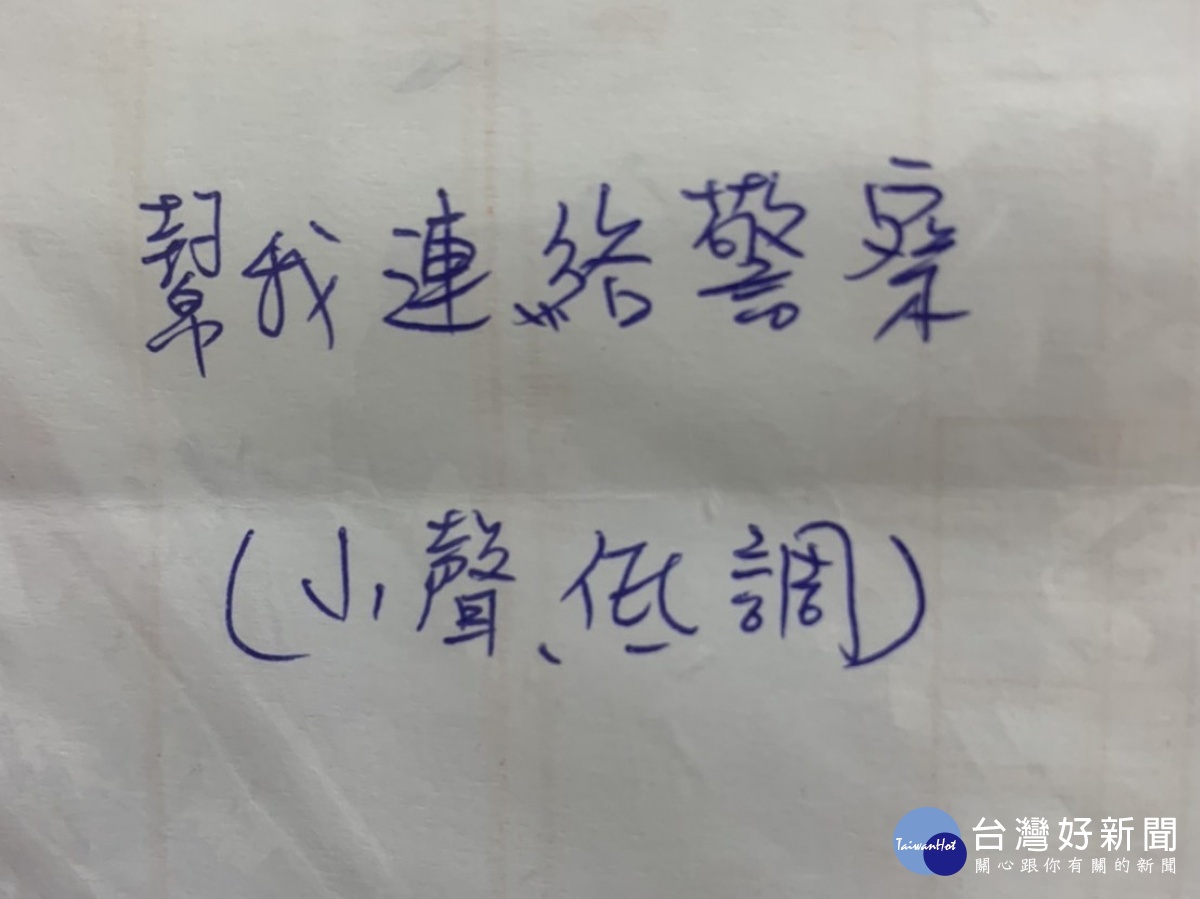 幫我連絡警察
(小聲、低調)
TaiwanHot
台灣好新聞
關心跟你有關的新聞